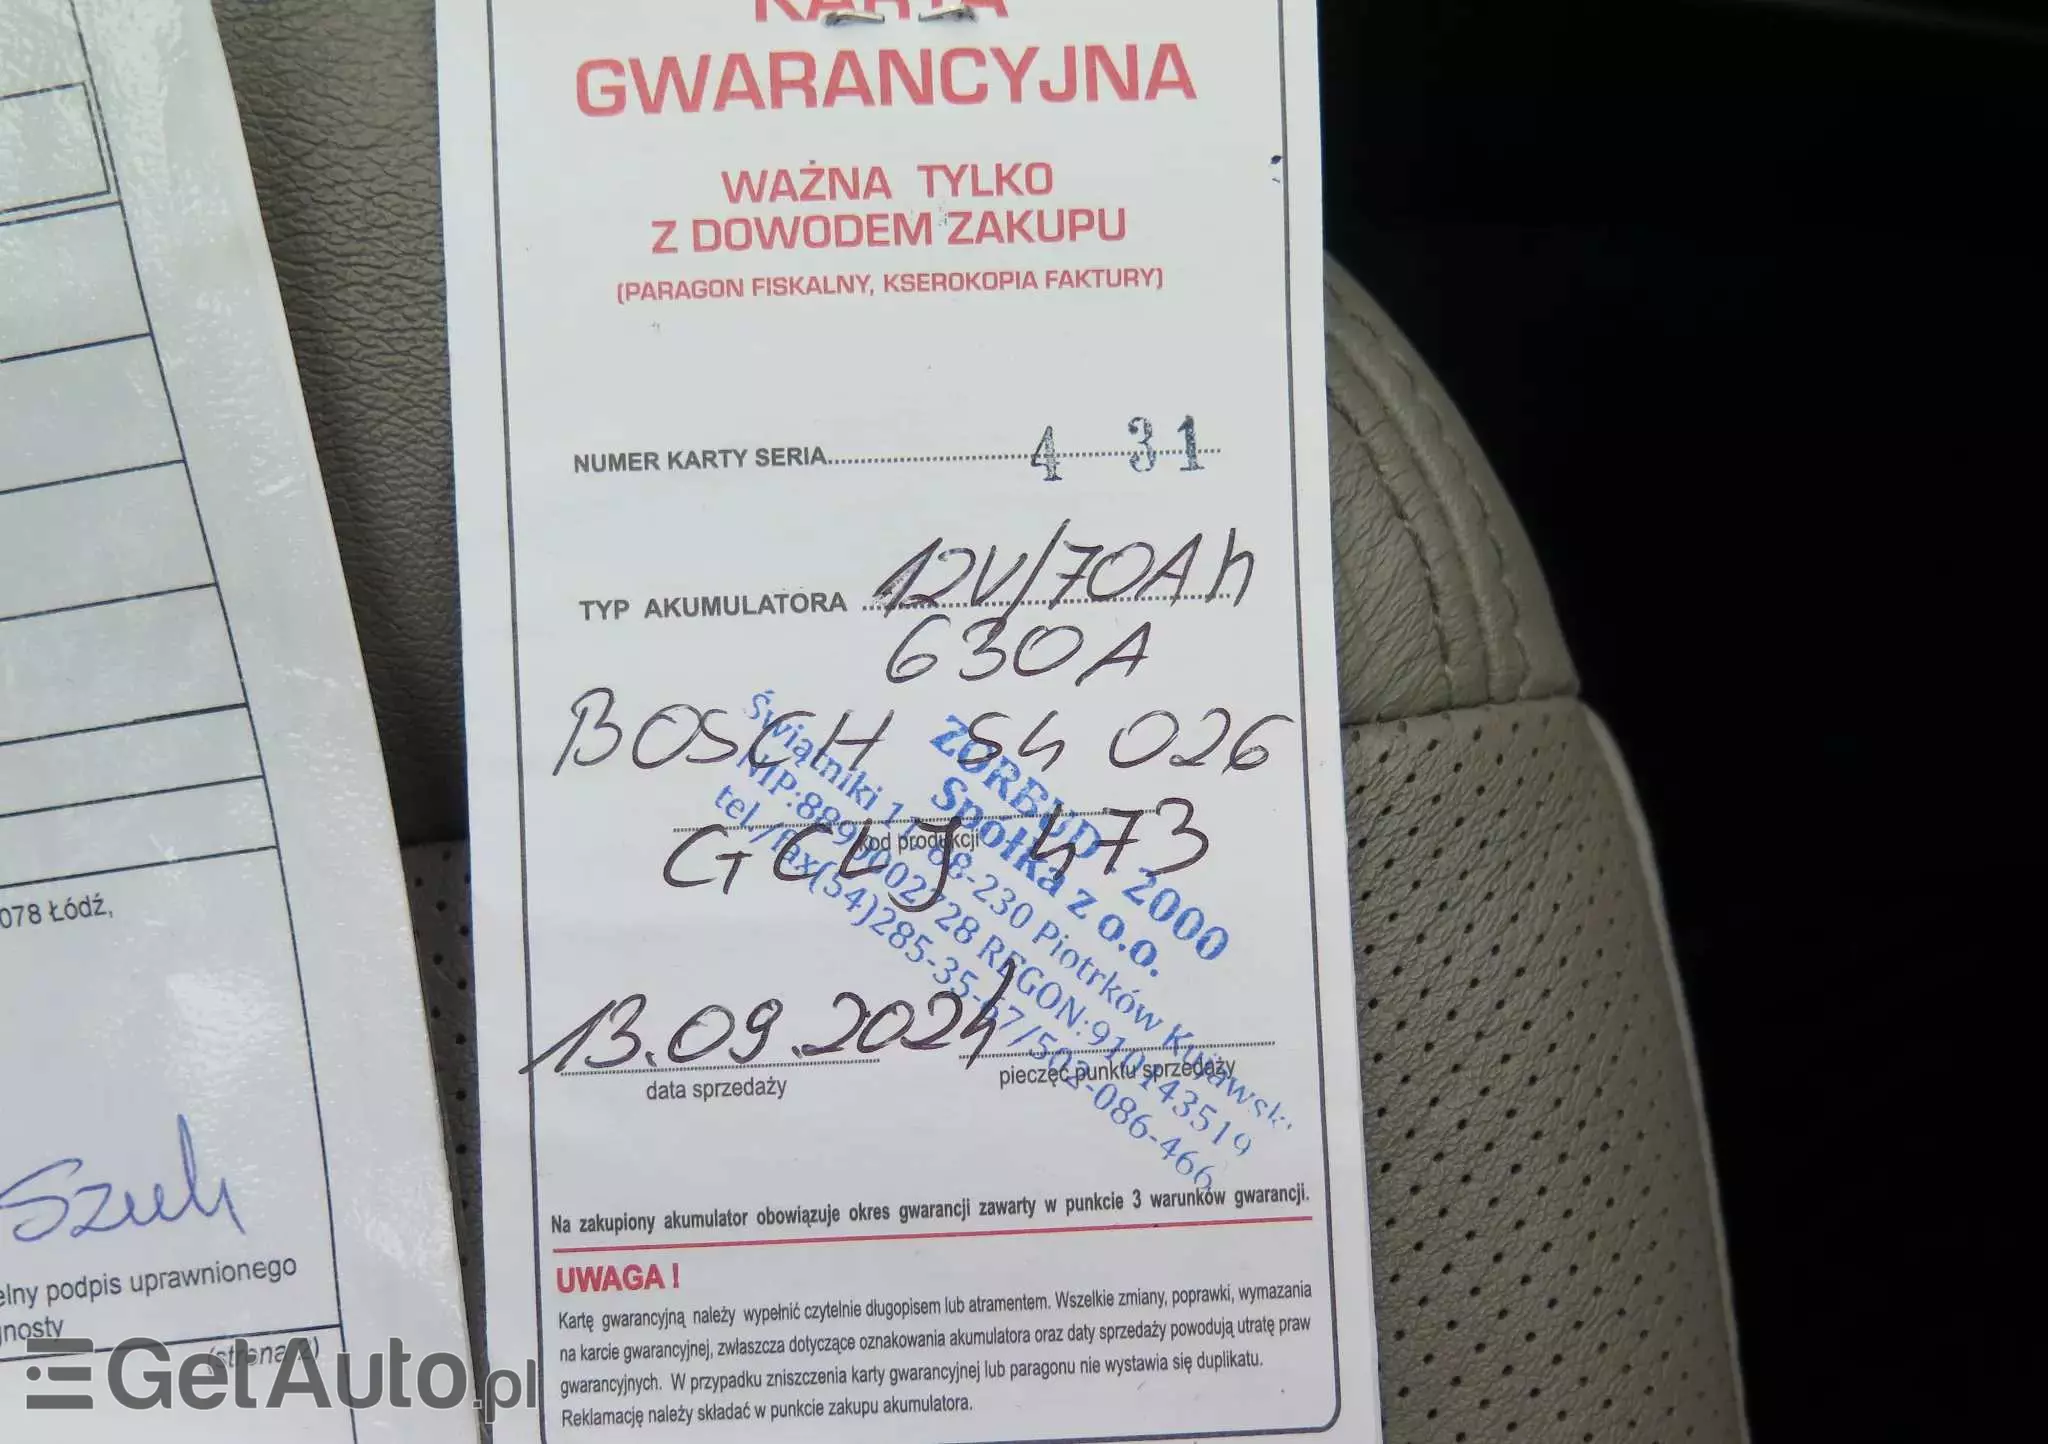 KARTA
GWARANCYJNA
WAŻNA TYLKO
Z DOWODEM ZAKUPU
(PARAGON FISKALNY, KSEROKOPIA FAKTURY)
NUMER KARTY SERIA 4 31
TYP AKUMULATORA 12V/70Ah
630A
BOSCH S4 026
kod produkcji
473
ZORBUD 2000
Spółka z o.o.
Świątniki 88-230 Piotrków Kujawski
REGON:910143519
tel./fax(54)285-35-67/502-086-466
13.09.2024
data sprzedaży
pieczęć punktu sprzedaży
Na zakupiony akumulator obowiązuje okres gwarancji zawarty w punkcie 3 warunków gwarancji.
UWAGA !
Kartę gwarancyjną należy wypełnić czytelnie długopisem lub atramentem. Wszelkie zmiany, poprawki, wymazania
na karcie gwarancyjnej, zwłaszcza dotyczące oznakowania akumulatora oraz daty sprzedaży powodują utratę praw
gwarancyjnych. W przypadku zniszczenia karty gwarancyjnej lub paragonu nie wystawia się duplikatu.
Reklamację należy składać w punkcie zakupu akumulatora.
078 Łódź,
elny podpis uprawnionego
gnosty
(strona 2)
GetAuto.pl